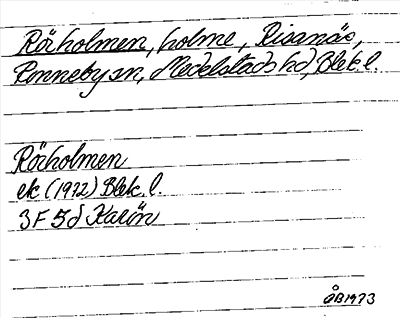 Rörholmen, holme, Risanäs,
Ronneby sn, Medelstads hd, Blek. l.
Rörholmen
ek (1972) Blek. l.
3F 5d Karön
ÅB1973